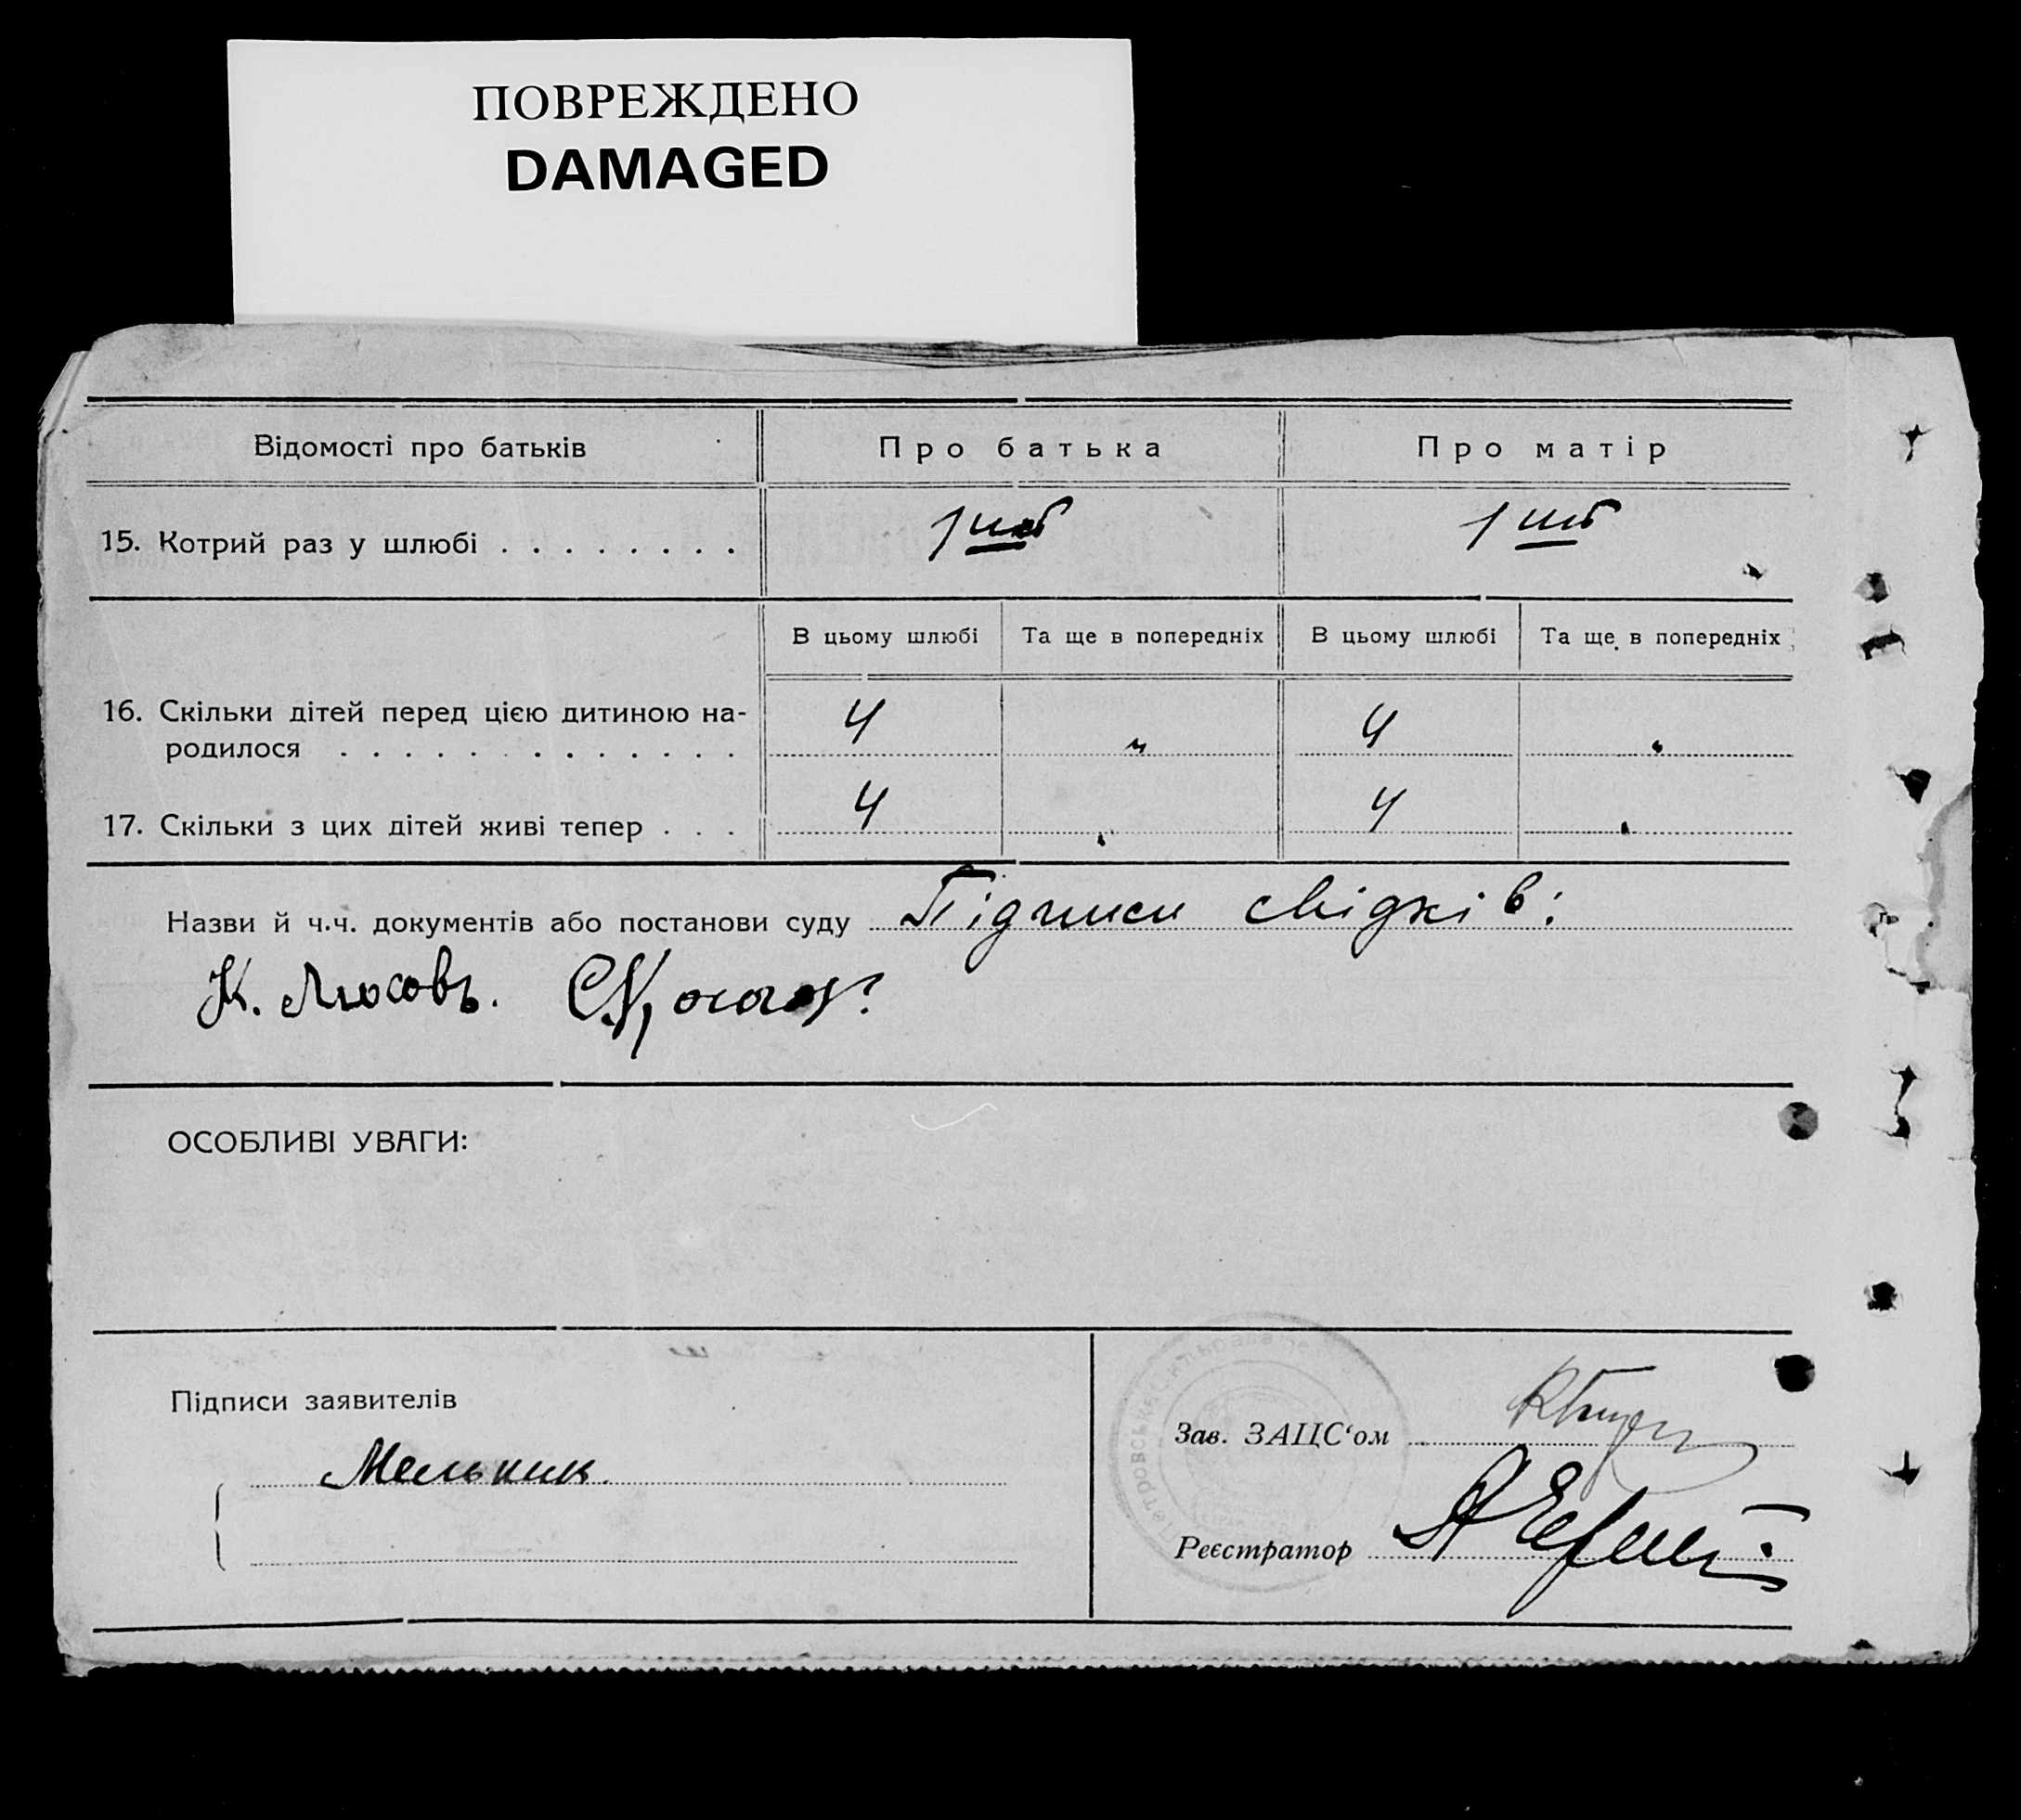 ПОВРЕЖДЕНО
DAMAGED
Відомості про батьків
Про батька
Про матір
15. Котрий раз у шлюбі . . . . . . . .
1 1
В цьому шлюбі
Та ще в попередніх
В цьому шлюбі
Та ще в попередніх
16. Скільки дітей перед цією дитиною на-
4 4
родилося . . . . . . . . . . . . .
17. Скільки з цих дітей живі тепер . . .
4 4
Назви й ч.ч. документів або постанови суду Підписи свідків:
К. Люсовъ.
ОСОБЛИВІ УВАГИ:
Підписи заявителів
Мельник
Зав. ЗАЦС‘ом
Реєстратор